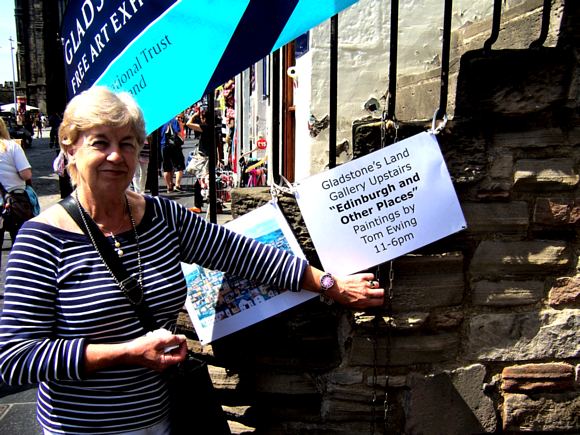 GLADS
FREE ART EXH
tional Trust
land
Gladstone's Land
Gallery Upstairs
"Edinburgh and
Other Places"
Paintings by
Tom Ewing
11-6pm